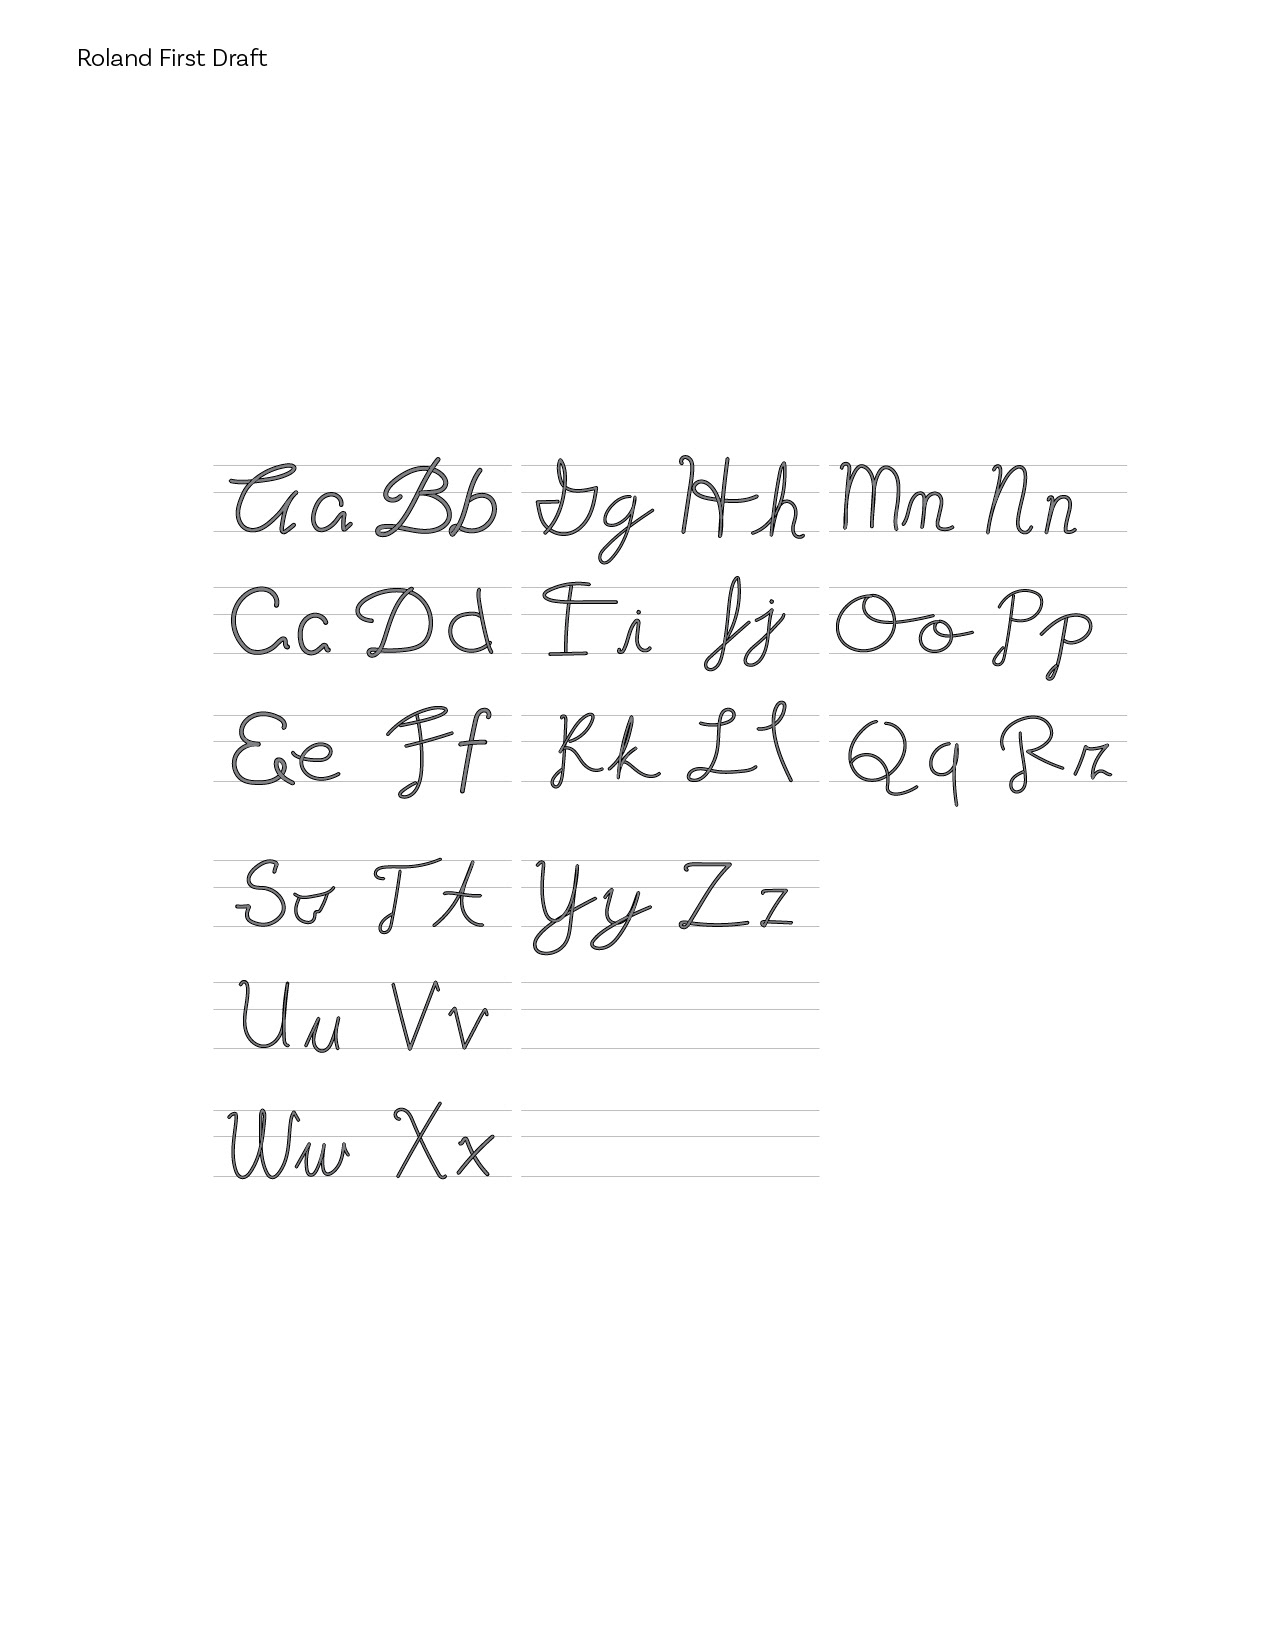 Roland First Draft
Aa Bb Gg Hh Mm Nn
Cc Dd Ii Jj Oo Pp
Ee Ff Kk Ll Qq Rr
Ss Tt Yy Zz
Uu Vv
Ww Xx